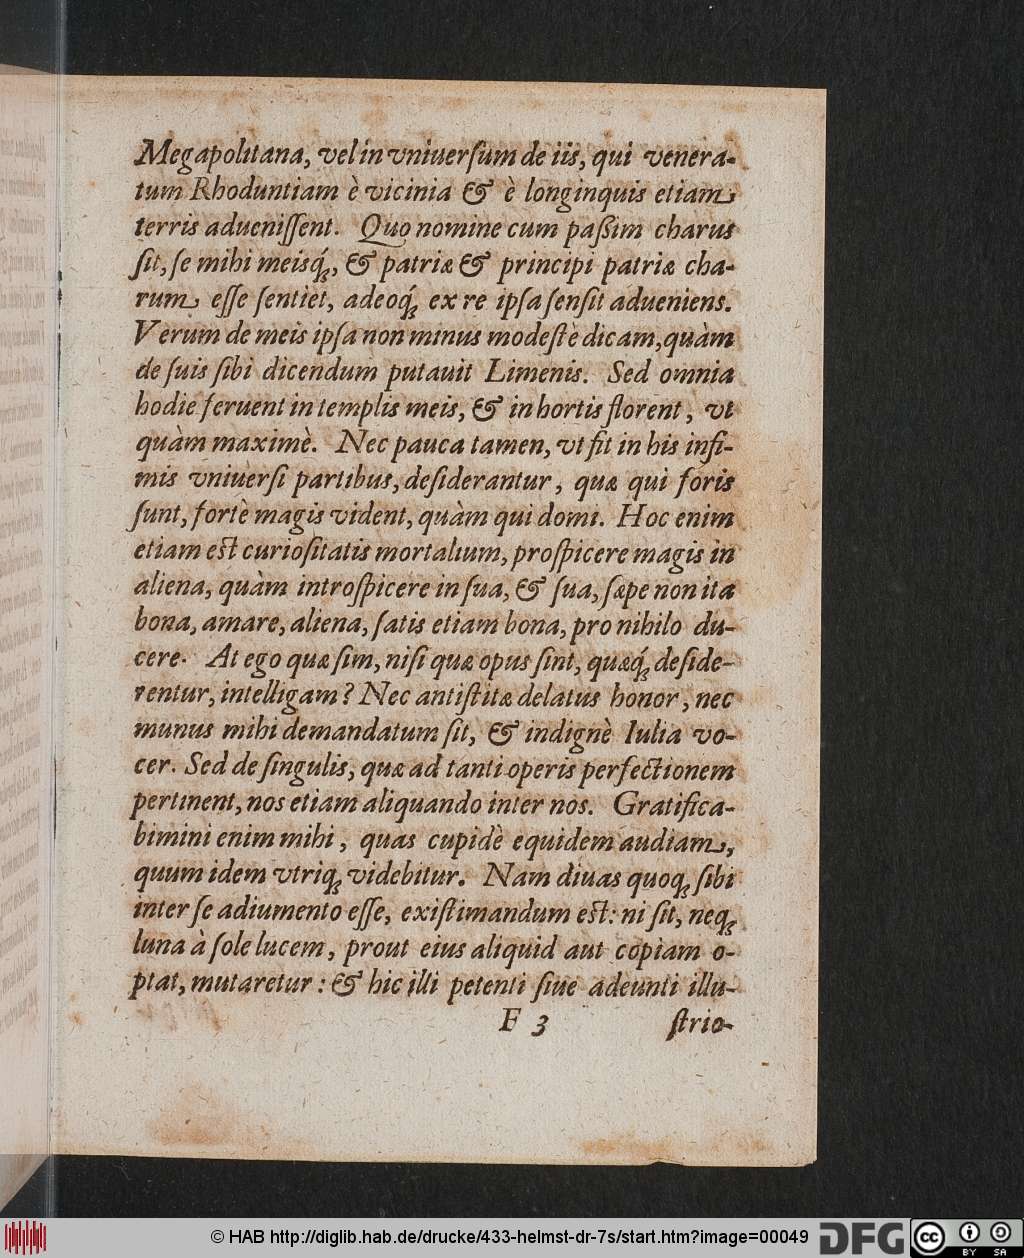 Megapolitana, vel in vniuerſum de iis, qui venera-
tum Rhoduntiam è vicinia & è longinquis etiam
terris adueniſſent. Quo nomine cum paßim charus
ſit, ſe mihi meisq́ꝫ, & patriæ & principi patriæ cha-
rum eſſe ſentiet, adeoq́ꝫ ex re ipſa ſenſit adueniens.
Verum de meis ipſa non minus modeſtè dicam, quàm
de ſuis ſibi dicendum putauit Limenis. Sed omnia
hodie feruent in templis meis, & in hortis florent, vt
quàm maximè. Nec pauca tamen, vt fit in his infi-
mis vniuerſi partibus, deſiderantur, quæ qui foris
ſunt, fortè magis vident, quàm qui domi. Hoc enim
etiam eſt curioſitatis mortalium, proſpicere magis in
aliena, quàm introſpicere in ſua, & ſua, ſæpe non ita
bona, amare, aliena, ſatis etiam bona, pro nihilo du-
cere. At ego quæ ſim, niſi quæ opus ſint, quæq́ꝫ deſide-
rentur, intelligam? Nec antiſtitæ delatus honor, nec
munus mihi demandatum ſit, & indignè Iulia vo-
cer. Sed de ſingulis, quæ ad tanti operis perfectionem
pertinent, nos etiam aliquando inter nos. Gratifica-
bimini enim mihi, quas cupidè equidem audiam,
quum idem vtriqꝫ videbitur. Nam diuas quoqꝫ ſibi
inter ſe adiumento eſſe, exiſtimandum eſt: ni ſit, neqꝫ
luna à ſole lucem, prout eius aliquid aut copiam o-
ptat, mutaretur: & hic illi petenti ſiue adeunti illu-
F 3 ſtrio-
© HAB http://diglib.hab.de/drucke/433-helmst-dr-7s/start.htm?image=00049
DFG cc BY SA